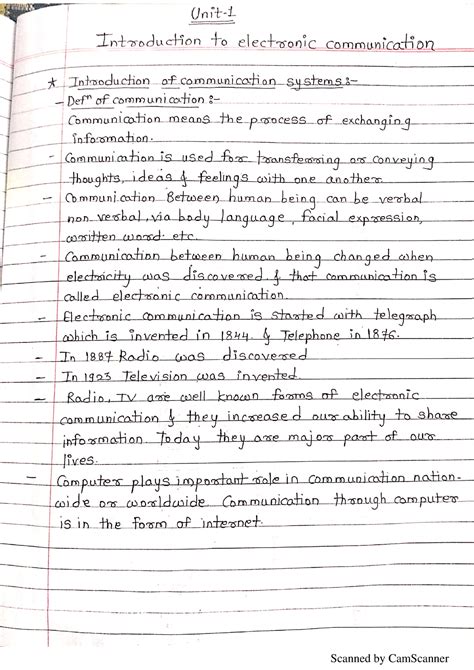 Unit-1
Introduction to electronic communication
* Introduction of communication systems :-
- Defⁿ of communication :-
Communication means the process of exchanging
information.
- Communication is used for transferring or conveying
thoughts, ideas & feelings with one another
- Communication Between human being can be verbal
non verbal, via body language, facial expression,
written word. etc.
- Communication between human being changed when
electricity was discovered & that communication is
called electronic communication.
- Electronic communication is started with telegraph
which is invented in 1844. & Telephone in 1876.
- In 1887 Radio was discovered
- In 1923 Television was invented.
- Radio, TV are well known forms of electronic
communication & they increased our ability to share
information. Today they are major part of our
lives.
- Computer plays important role in communication nation-
wide or worldwide. Communication through computer
is in the form of internet.
Scanned by CamScanner